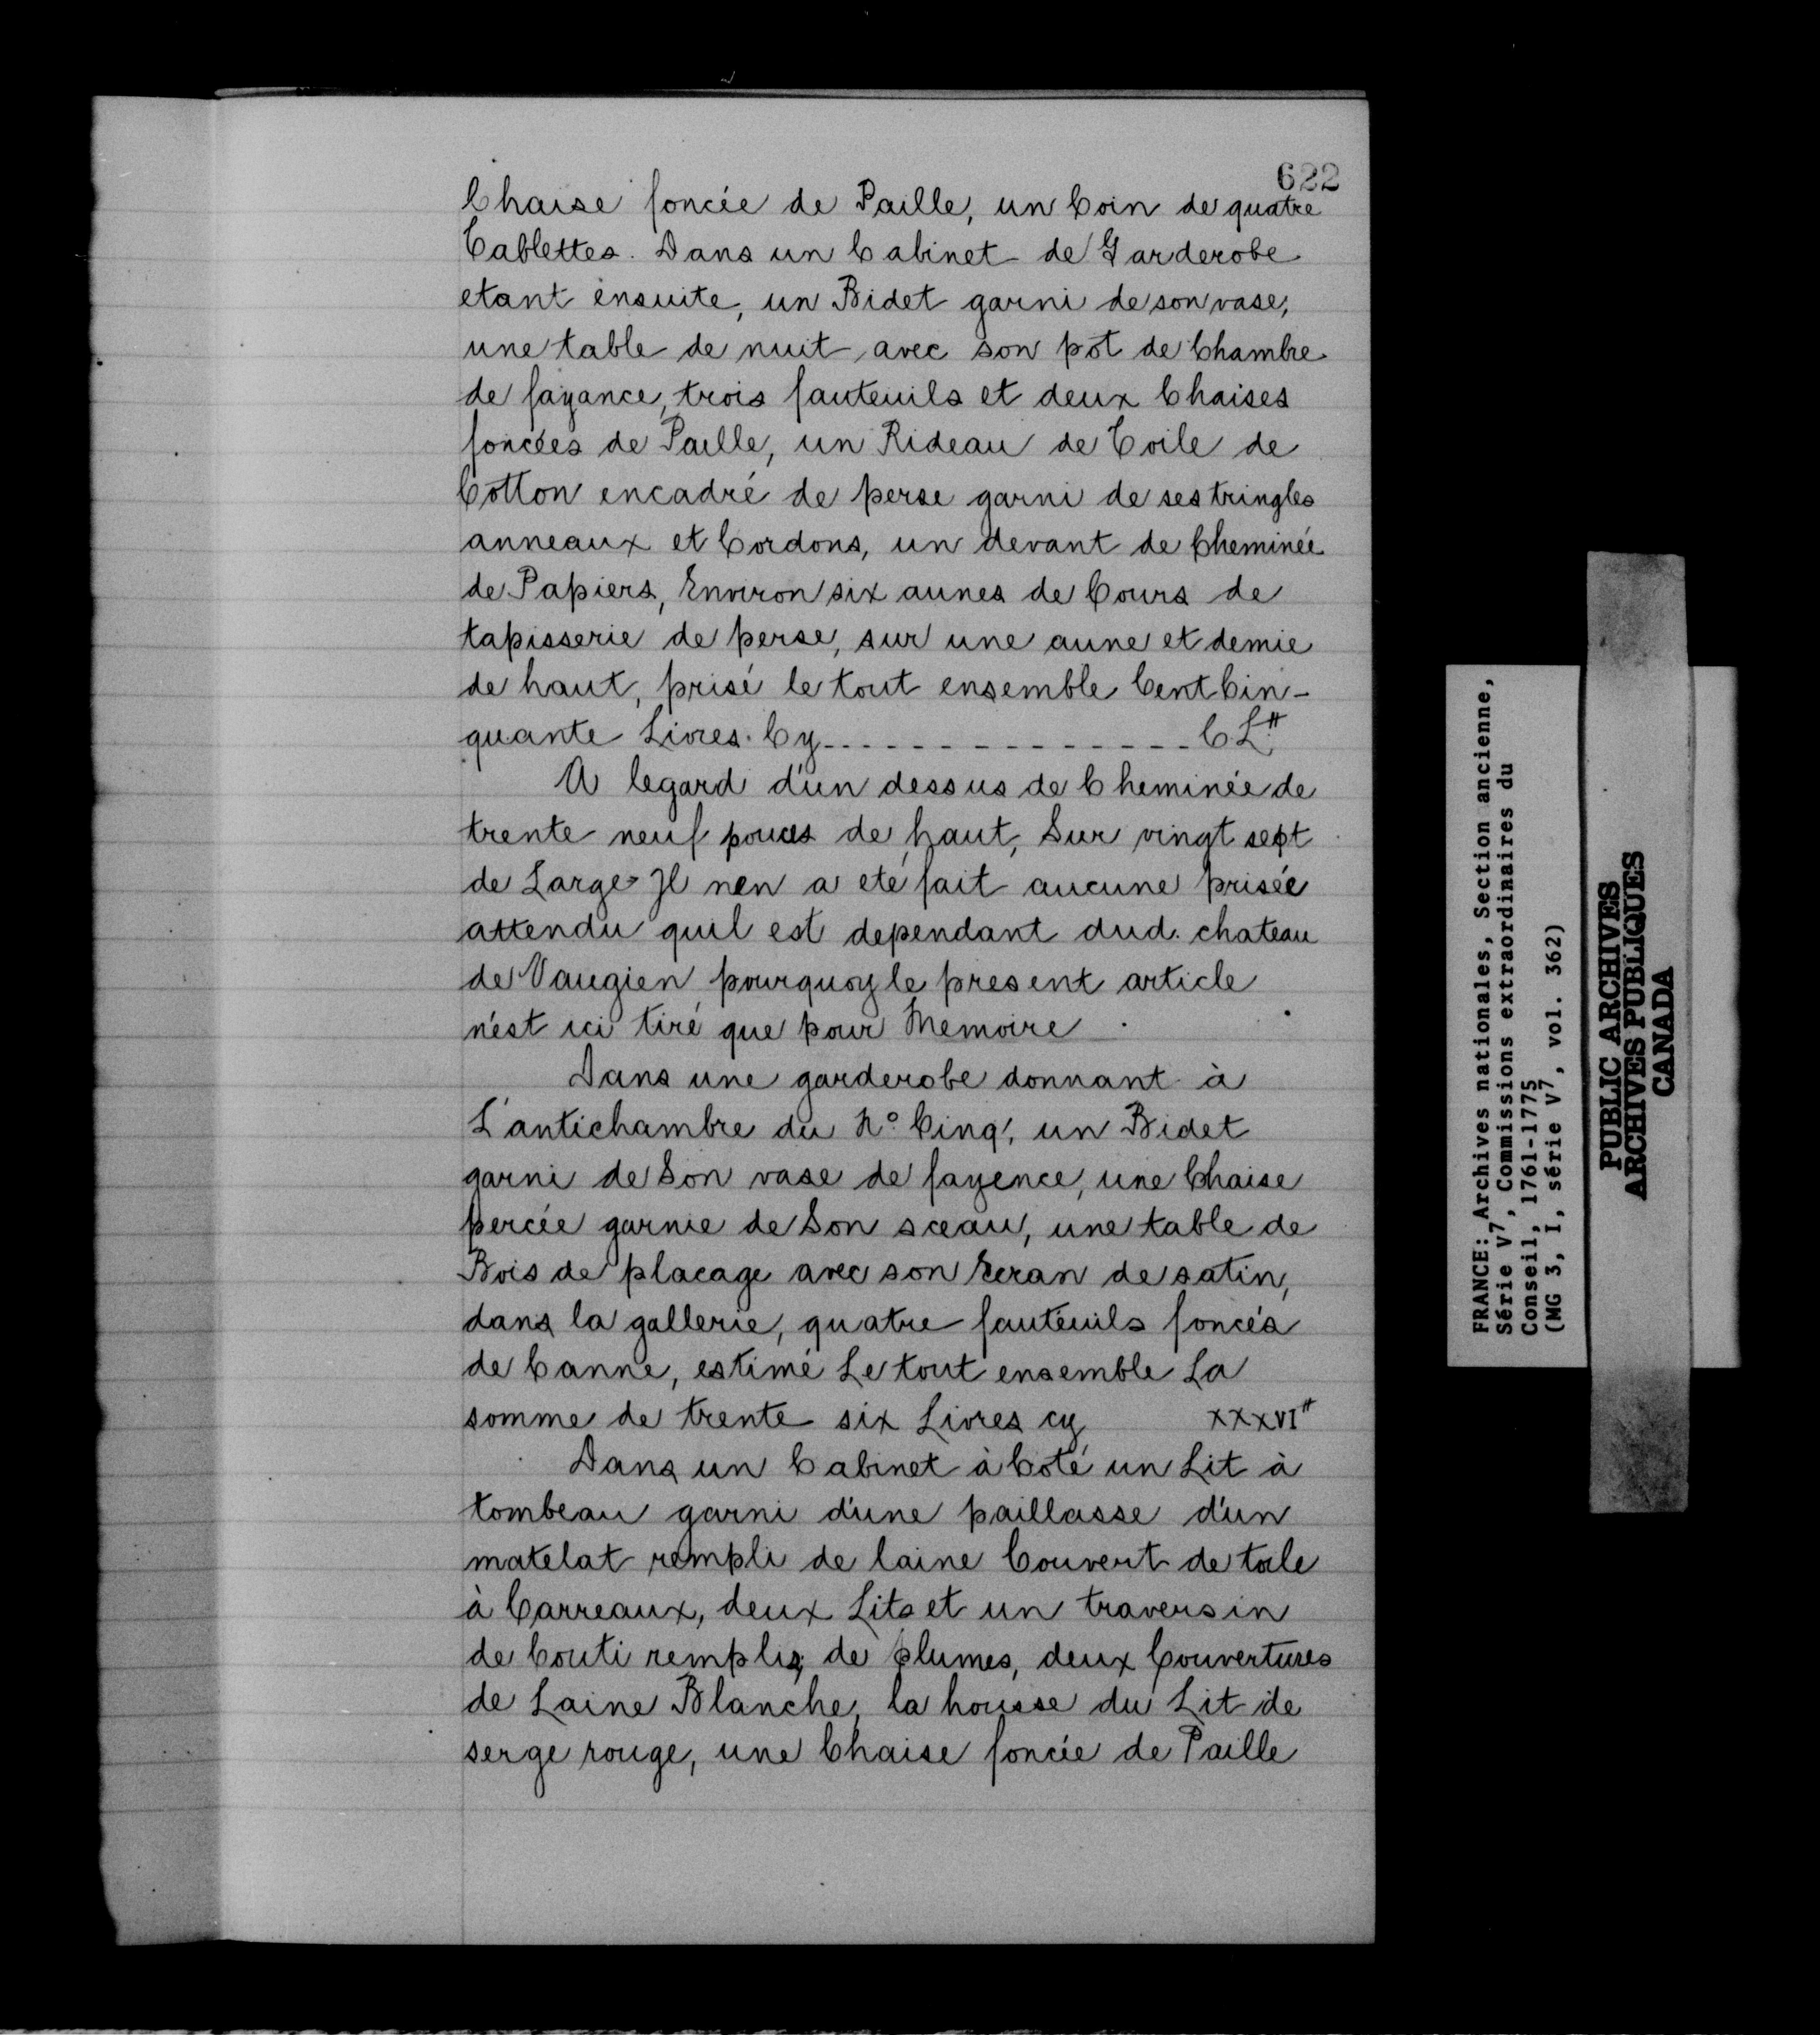 622
Chaise foncée de Paille, un Coin de quatre
Tablettes. Dans un Cabinet de Garderobe
etant ensuite, un Bidet garni de son vase,
une table de nuit avec son pot de Chambre
de fayance, trois fauteuils et deux Chaises
foncées de Paille, un Rideau de Toile de
Cotton encadré de perse garni de ses tringles
anneaux et Cordons, un devant de Cheminée
de Papiers, Environ six aunes de Cours de
tapisserie de perse, sur une aune et demie
de haut, prisé le tout ensemble Cent Cin-
quante Livres. Cy ---------------- CL.#
A legard d'un dessus de Cheminée de
trente neuf pouces de haut, Sur vingt sept
de Large Il nen a eté fait aucune prisée
attendu quil est dependant dud. chateau
de Vaugien pourquoy le present article
n'est ici tiré que pour Memoire.
Dans une garderobe donnant à
L'antichambre du No. Cinq, un Bidet
garni de Son vase de fayence, une Chaise
percée garnie de Son sceau, une table de
Bois de placage avec son Ecran de satin,
dans la gallerie, quatre fauteuils foncés
de Canne, estimé Le tout ensemble La
somme de trente six Livres cy XXXVI#
Dans un Cabinet à Coté un Lit à
tombeau garni d'une paillasse d'un
matelat rempli de laine Couvert de toile
à Carreaux, deux Lits et un traversin
de Couti remplis de plumes, deux Couvertures
de Laine Blanche, la housse du Lit de
serge rouge, une Chaise foncée de Paille
FRANCE: Archives nationales, Section ancienne,
Série V7, Commissions extraordinaires du
Conseil, 1761-1775
(MG 3, I, série V7, vol. 362)
PUBLIC ARCHIVES
ARCHIVES PUBLIQUES
CANADA